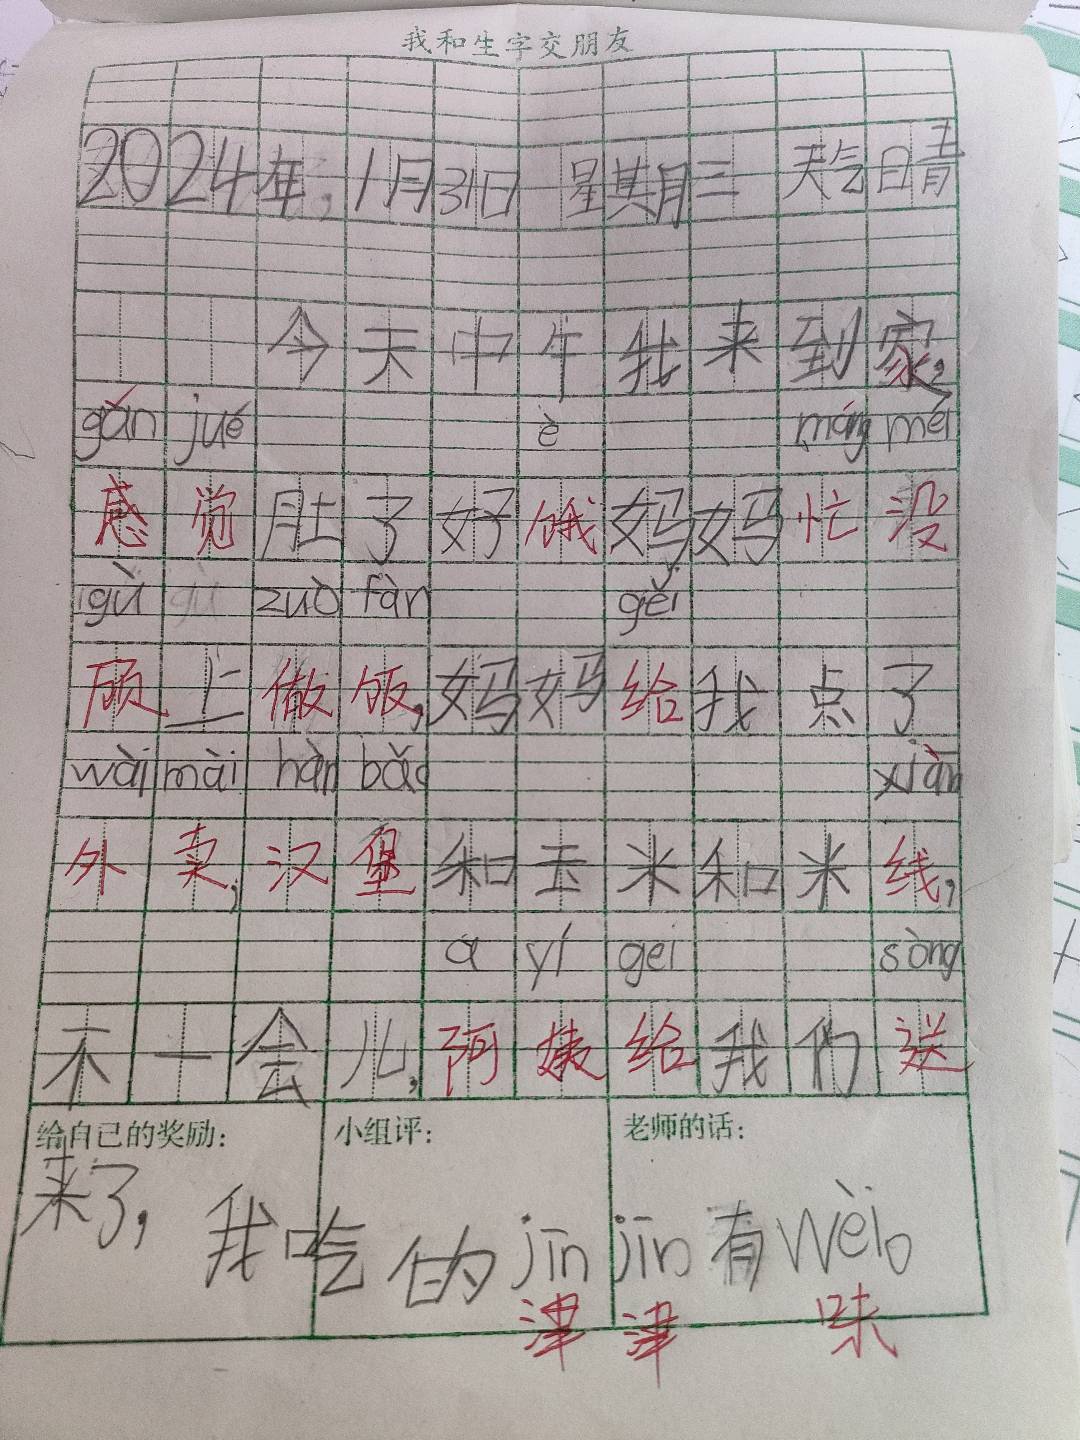 我和生字交朋友
2024年,1月31日 星期三 天气晴
今天中午我来到家,
gǎn jué è máng méi
感觉肚了好饿妈妈忙没
gù zuò fàn gěi
顾上做饭,妈妈给我点了
wài mài hàn bǎo xiàn
外卖,汉堡和玉米和米线,
a yí gei sòng
不一会儿,阿姨给我们送
给自己的奖励: 小组评: 老师的话:
来了,我吃的jīn jīn有wèi。
津津 味